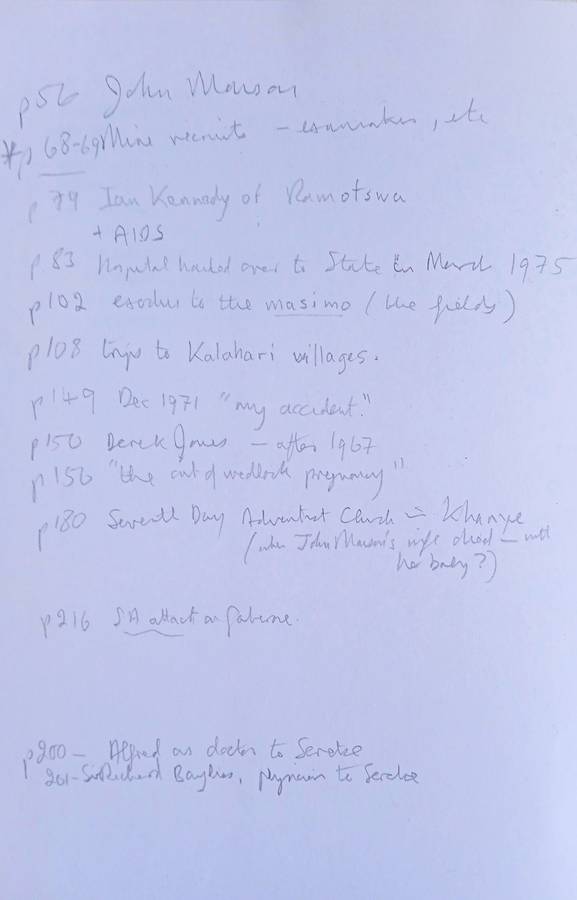 p56 John Mauson
*p 68-69 Mine recruits - examinations, etc
p 79 Ian Kennedy of Ramotswa
+ AIDS
p 83 Hospital handed over to State in March 1975
p102 exodus to the masimo (the fields)
p108 trips to Kalahari villages.
p149 Dec 1971 "my accident."
p150 Derek Jones - after 1967
p156 "the out of wedlock pregnancy"
p180 Seventh Day Adventist Church in Khanye
(when John Mauson's wife died - with
her baby?)
p216 SA attack on Gaberone.
p200 - Alfred as doctor to Seretse
201 - Sir Richard Bayliss, physician to Seretse